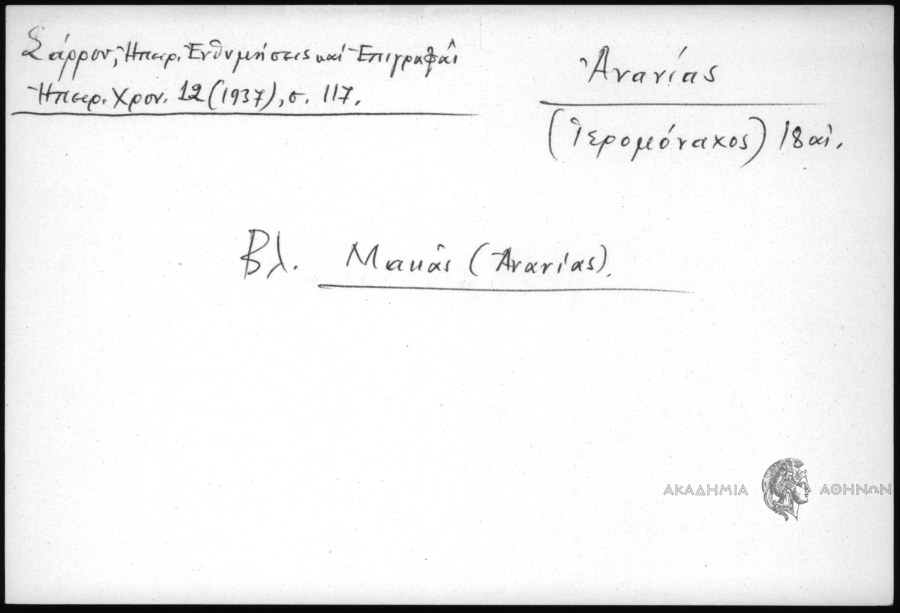 Σάρρου, Ἠπειρ. Ἐνθυμήσεις καί Ἐπιγραφαὶ
Ἠπειρ. Χρον. 12 (1937), σ. 117.
Ἀνανίας
(Ἱερομόναχος) 18 αἰ.
Βλ. Μακᾶς (Ἀνανίας).
ΑΚΑΔΗΜΙΑ ΑΘΗΝΩΝ